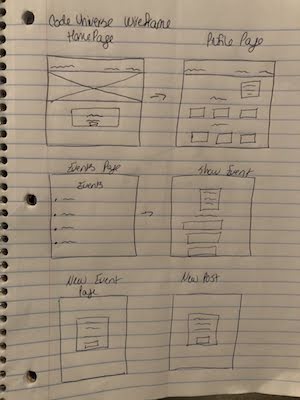 Code Universe Wireframe
HomePage
Profile Page
Events Page
Events
Show Event
New Event
Page
New Post